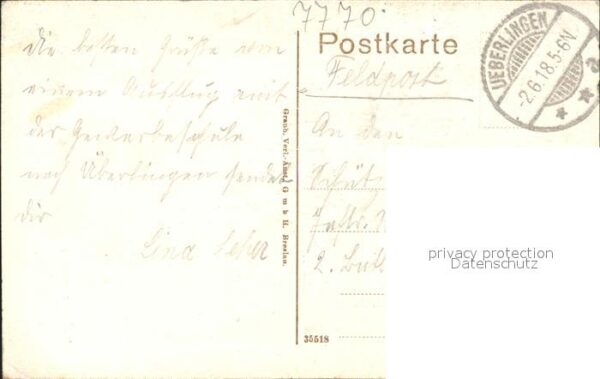 7770
Postkarte
Feldpost
UEBERLINGEN
-2.6.18.5-6V.
* *
Die besten Grüße von
einem Ausflug mit
der Gewerbeschule
nach Überlingen sendet
dir
Lina
An den
Schüt
2.
Graph. Verl.-Anst. G m b H. Breslau.
35518
privacy protection
Datenschutz